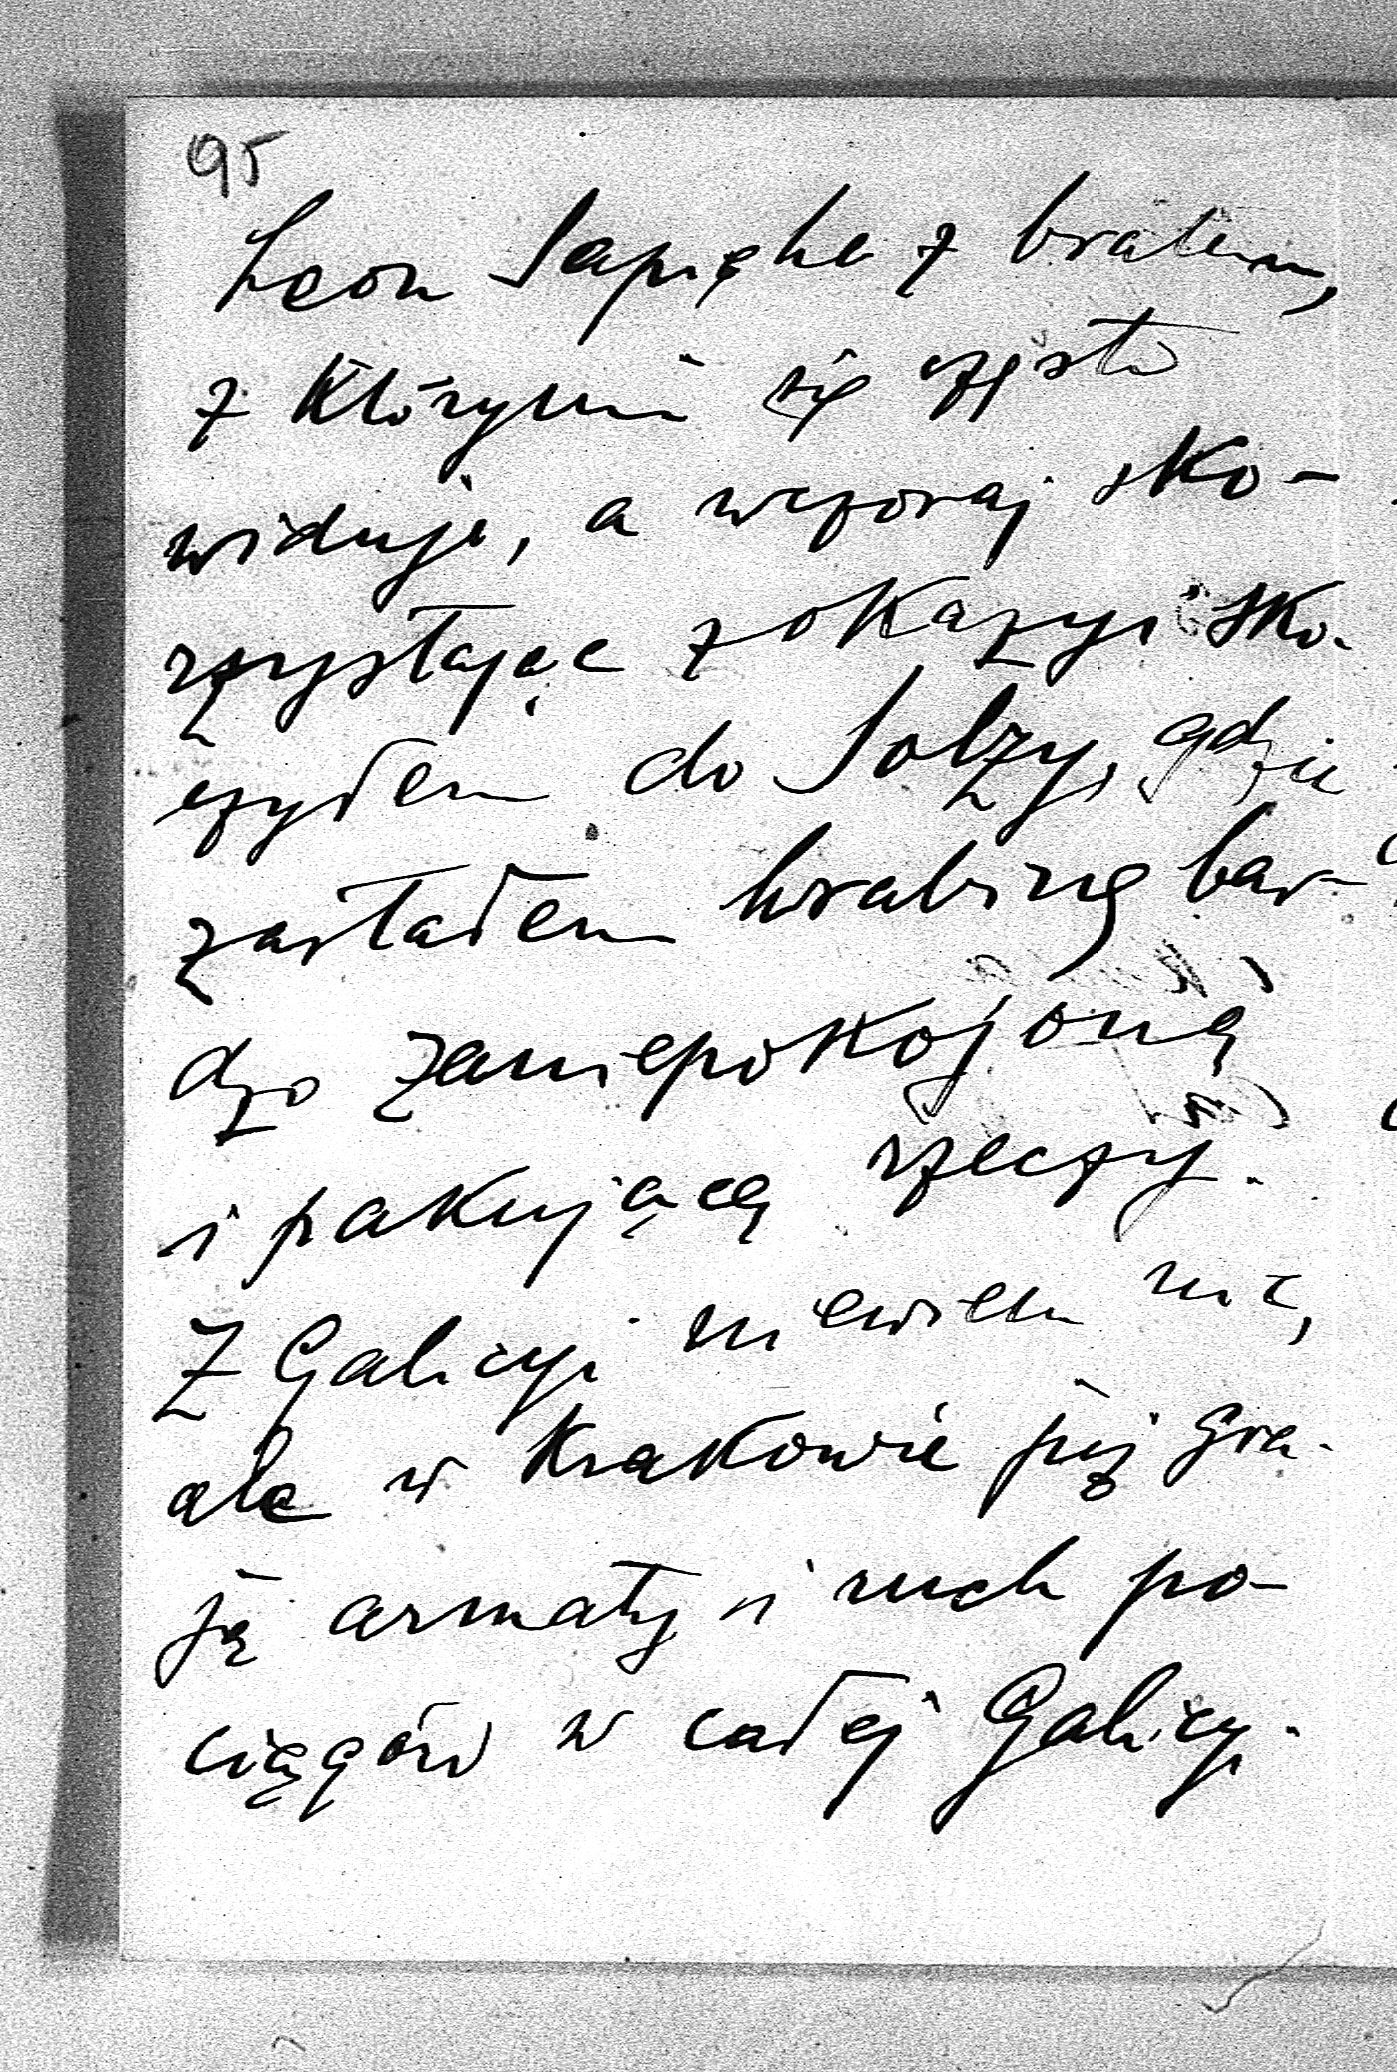 95
Leon Sapieha z bratem,
z którymi się często
widuję, a wczoraj sko-
rzystając z okazyi sko-
czyłem do Solzy, gdzie
zastałem hrabinę bar-
dzo zaniepokojoną
i pakującą rzeczy.
Z Galicyi niewiem nic,
ale w Krakowie już gra-
ją armaty i ruch po-
ciągów w całej Galicyi